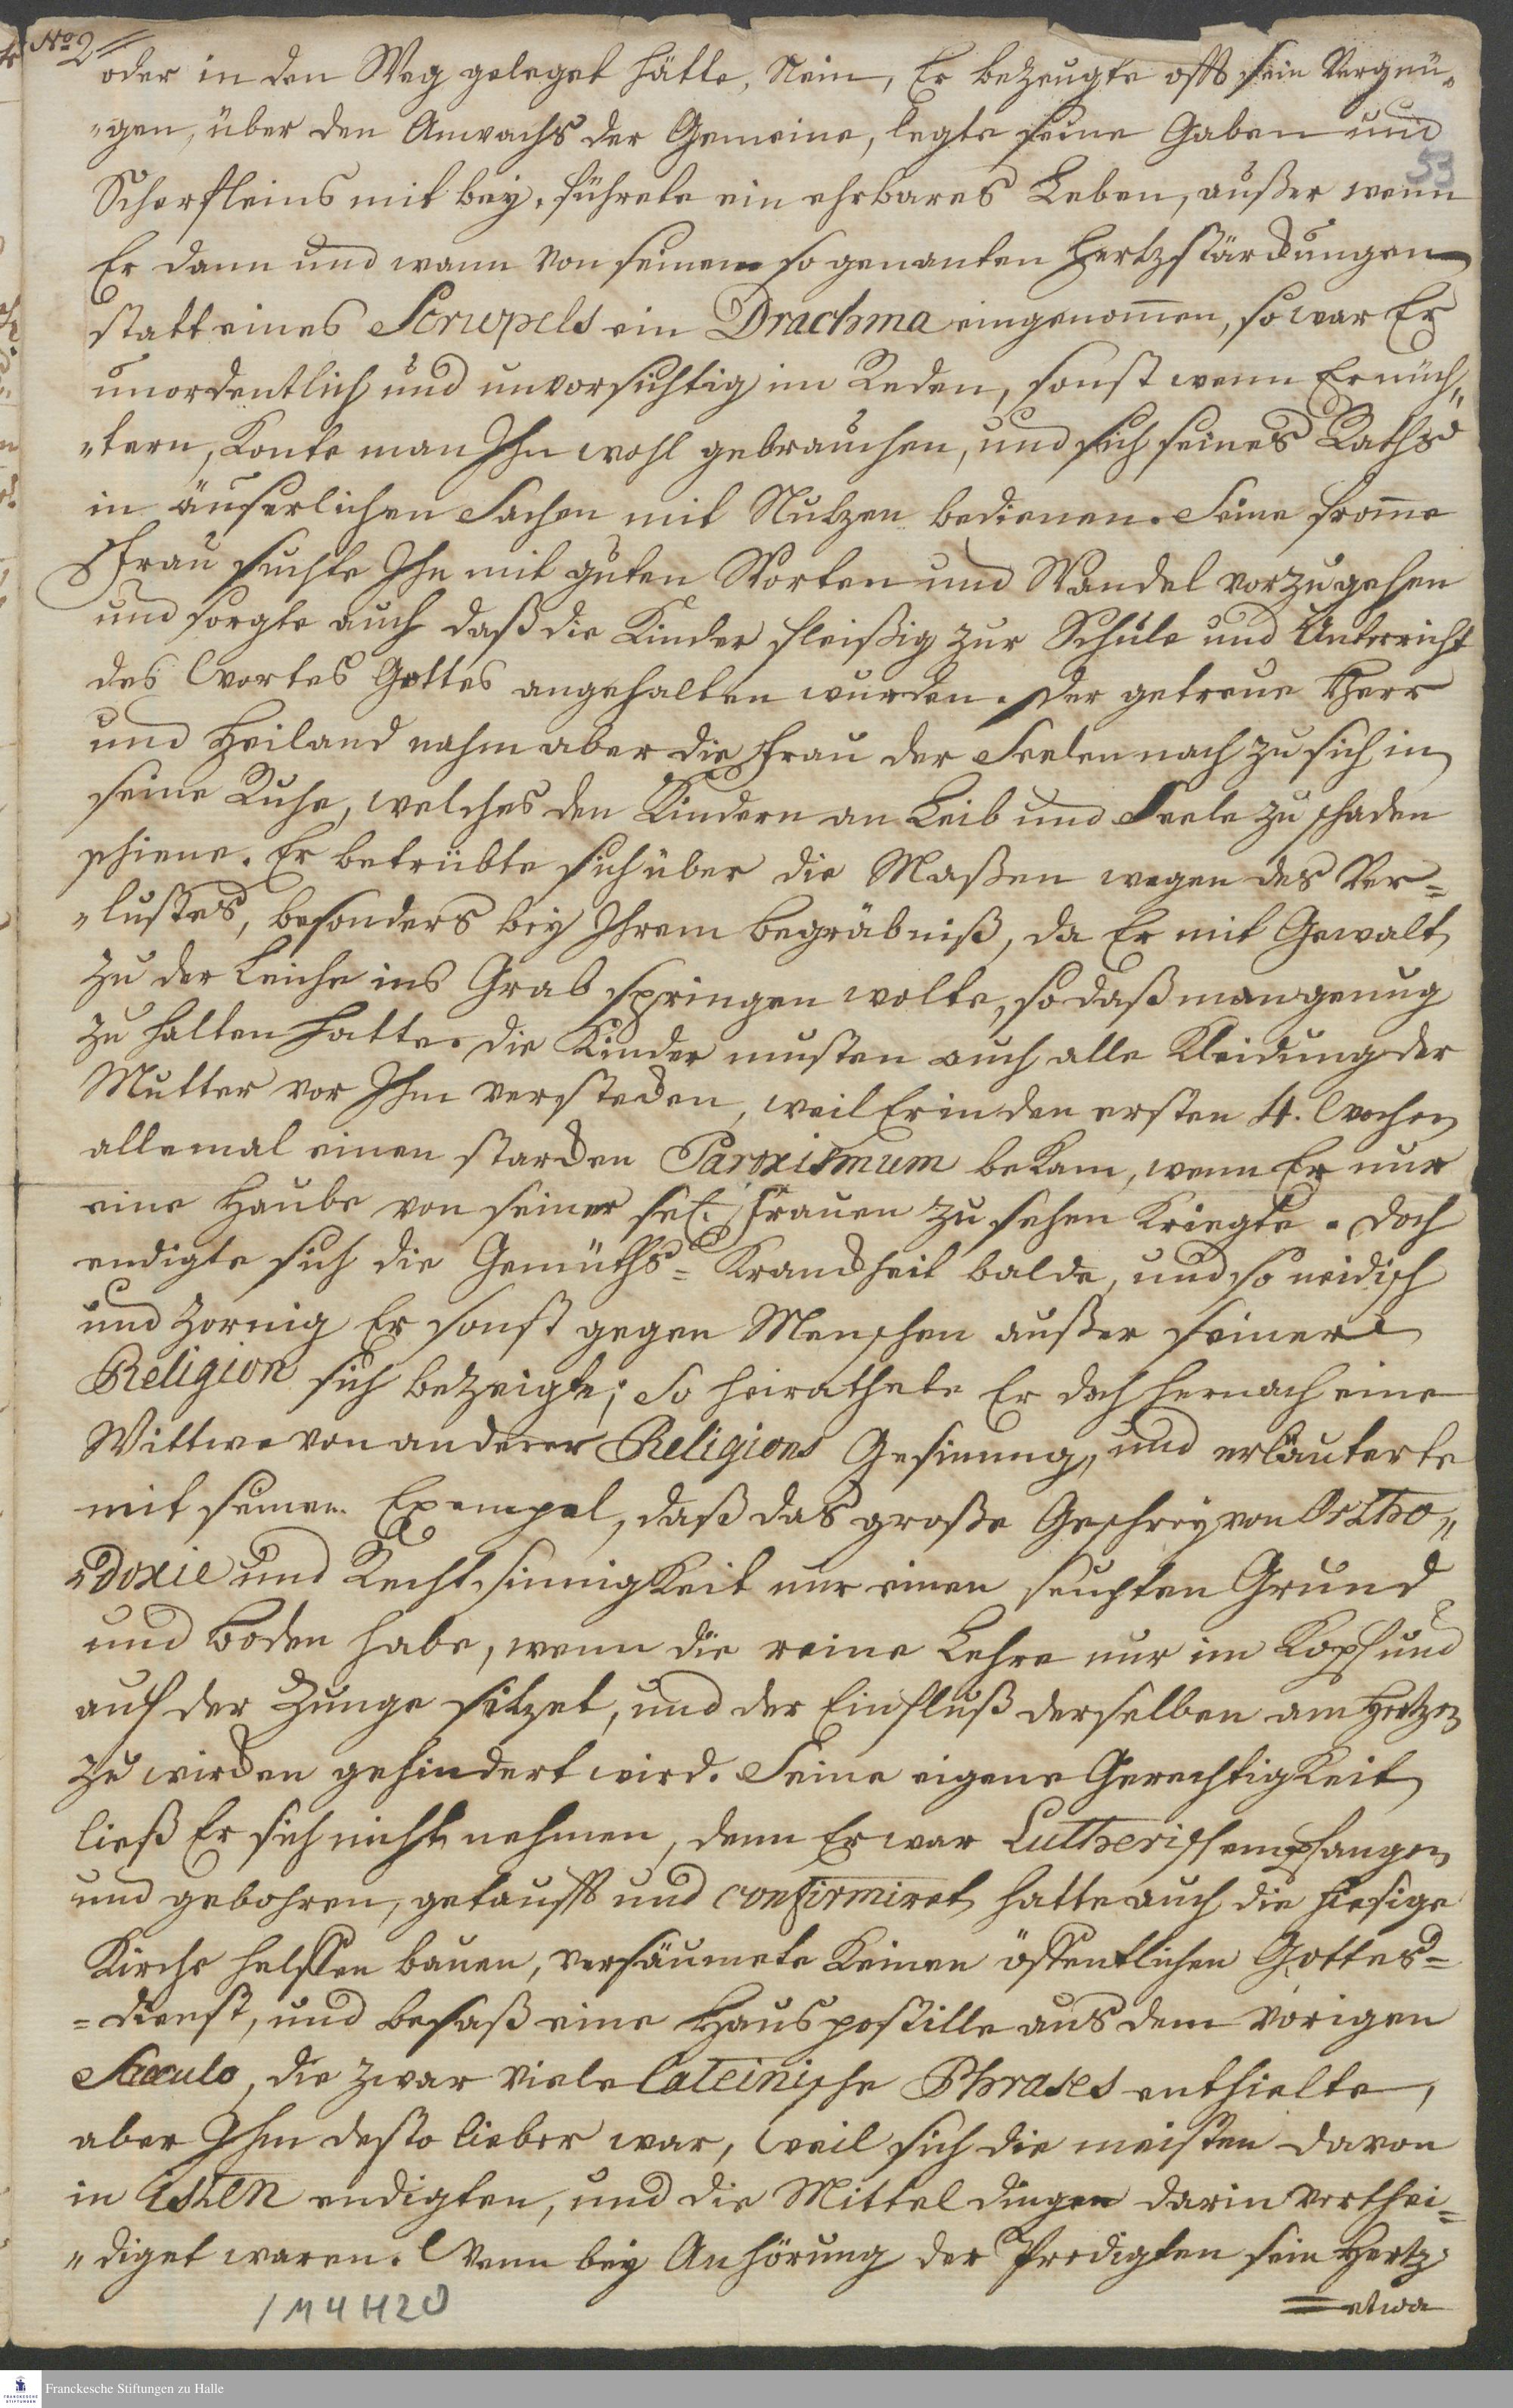 No 2
oder in den Weg geleget hätte, Nein, Er bezeugte offt sein Vergnü-
-gen, über den Anwachs der Gemeine, legte seine Gaben und
53
Scherfleins mit bey, führete ein ehrbares Leben, außer wenn
Er dann und wann von seinem so genanten Hertzstärckungen
statt eines Scrupels ein Drachma eingenom̄en, so war Er
unordentlich und unvorsichtig im Reden, sonst wenn Er nüch-
-tern, konte man Ihn wohl gebrauchen, und sich seines Raths
in äuserlichen Sachen mit Nutzen bedienen. Seine from̄e
Frau suchte Ihn mit guten Worten und Wandel vorzugehen
und sorgte auch daß die Kinder fleißig zur Schule und Unterricht
des Wortes Gottes angehalten wurden. Der getreue Herr
und Heiland nahm aber die Frau der Seelen nach zu sich in
seine Ruhe, welches den Kindern an Leib und Seele zu schaden
schiene. Er betrübte sich über die Maßen wegen des Ver=
-lustes, besonders bey Ihrem Begräbniß, da Er mit Gewalt
zu der Leiche ins Grab springen wolte, so daß man genug
zu halten hatte. Die Kinder musten auch alle Kleidung der
Mutter vor Ihm verstecken, weil Er in den ersten 4. Wochen
allemal einen starcken Paroxismum bekam, wenn Er nur
eine Haube von seiner sel. Frauen zu sehen kriegte. Doch
endigte sich die Gemüths=Kranckheit balde, und so neidisch
und zornig Er sonst gegen Menschen außer seiner
Religion sich bezeigte; So heirathete Er doch hernach eine
Wittwe von anderer Religions Gesinnung, und erläuterte
mit seinem Exempel, daß das große Geschrey von Ortho-
-doxie und Rechtsinnigkeit nur einen seuchten Grund
und Boden habe, wenn die reine Lehre nur im Kopf und
auf der Zunge sitzet, und der Einfluß derselben am Hertzen
zu wircken gehindert wird. Seine eigene Gerechtigkeit
ließ Er sich nicht nehmen, denn Er war Lutherisch empfangen
und gebohren, getaufft und confirmiret hatte auch die hiesige
Kirche helffen bauen, versäumete keinen öffentlichen Gottes=
=dienst, und besaß eine Hauspostille aus dem vorigen
Saeculo, die zwar viele lateinische Phrases enthielte,
aber Ihm desto lieber war, weil sich die meisten davon
in isten endigten, und die Mitteldinge darin verthei=
-diget waren. Wenn bey Anhörung der Predigten sein Hertz
etwa
1M4H20
Franckesche Stiftungen zu Halle